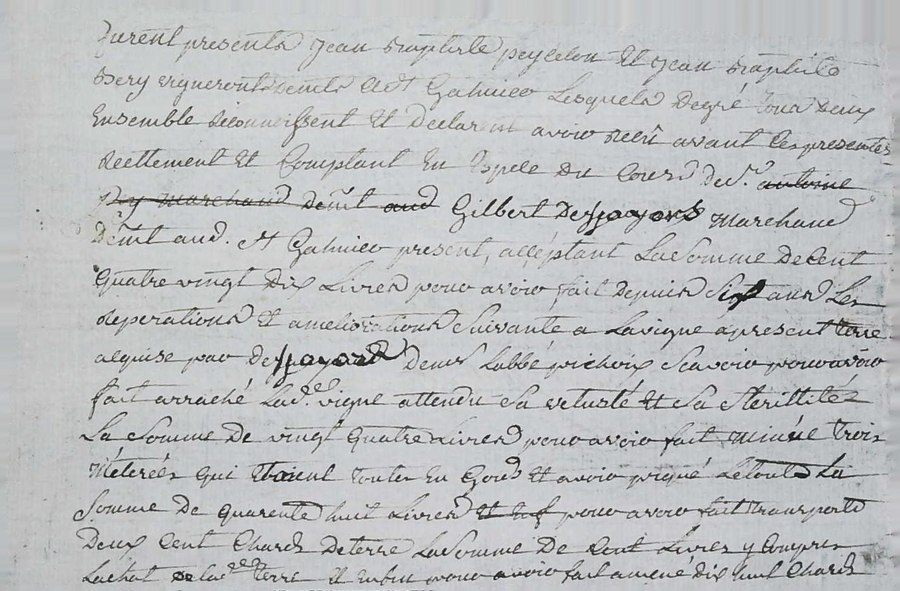 furent presents jean Baptiste peycelon Et jean Baptiste
Dery vigneront demts Audt Gahnieo Lesquels Degré tous deux
Ensemble Reconnoissent Et Declarent avoir Recu avant Ces presentes
Reellement Et Comptant En Espece Du Cours de Sr. antoine
Marchand demt aud Gilbert Despayors Marchand
Demt aud. Et Gahnieo present, acceptant La Somme De Cent
quatre vingt Dix Livres pour avoir fait Depuis Six ans Les
Reperations Et ameliorations Suivante a La vigne apresent terre
alquise par Despayors De mr Labbé pichoix Scavoir pour avoir
fait arraché Lade. vigne attendu Sa vetusté Et Sa Sterillités
La Somme De vingt quatre Livres pour avoir fait Minée trois
Méterées qui Etoient toutes En Et avoir piqué Letout La
Somme De quarente huit Livres Et Enf pour avoir fait transporté
Deux Cent Chards De terre La Somme De Cent Livres y Compris
Lachat De lade terre Et Enfin pour avoir fait amené Dix huit Chards